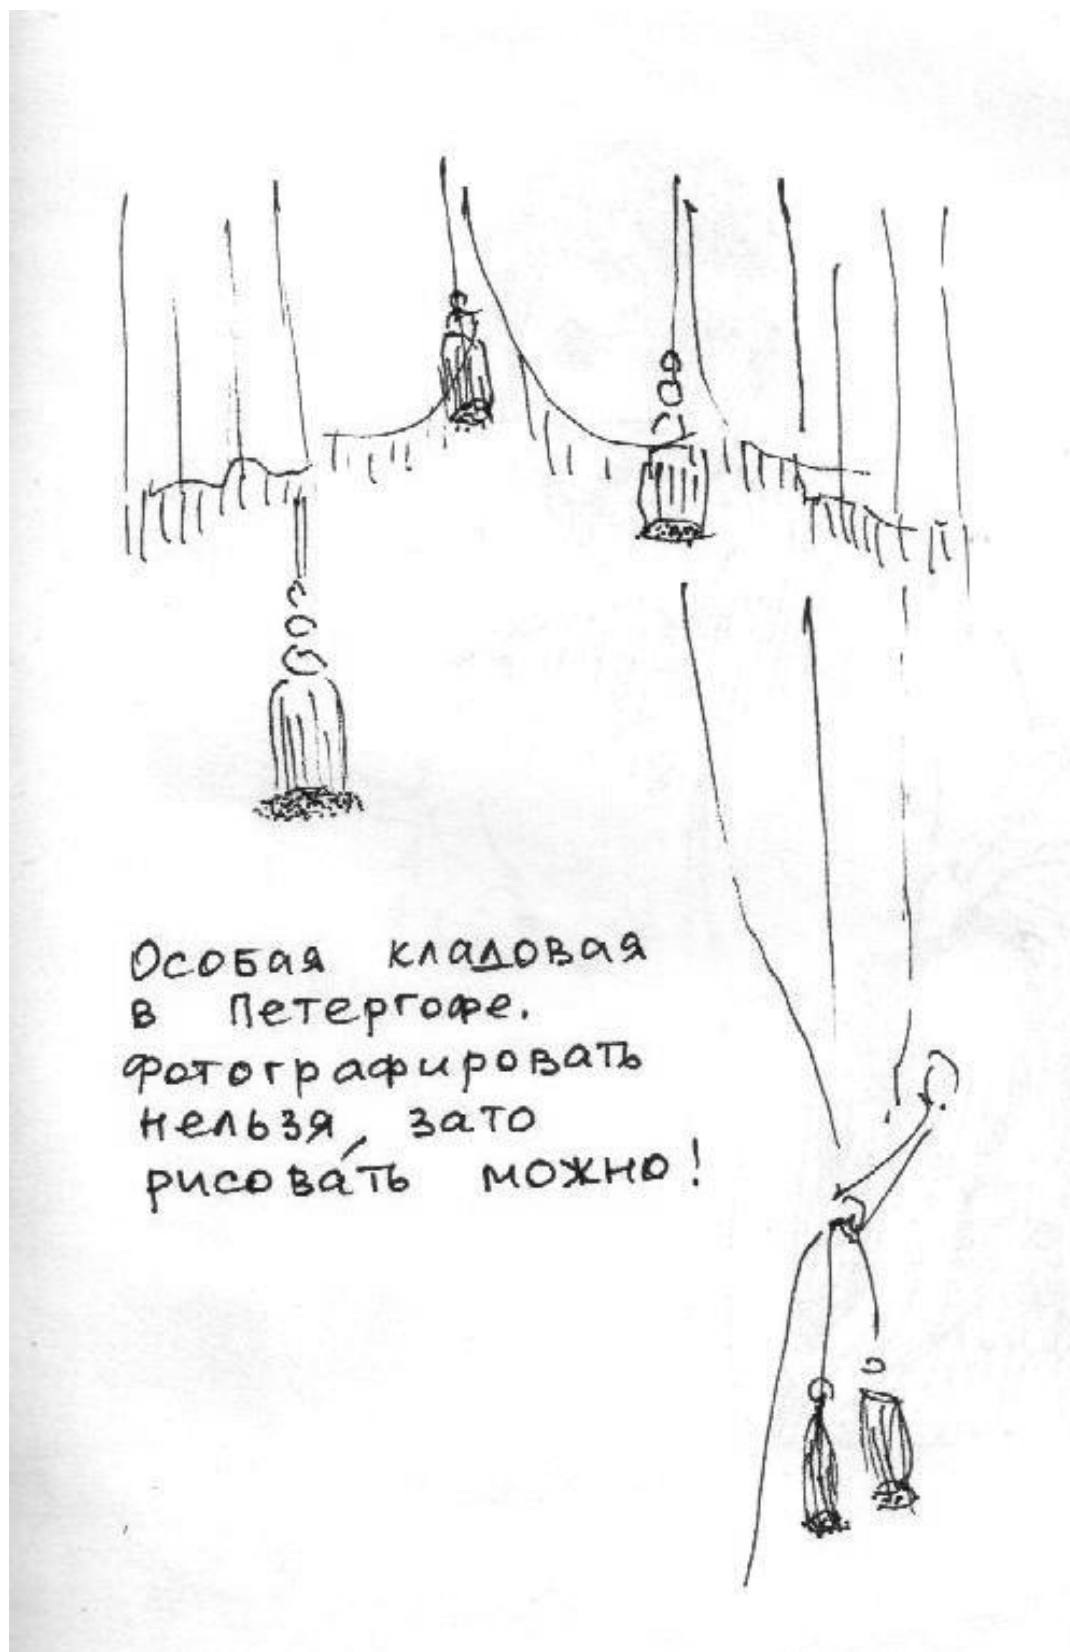 Особая кладовая
в Петергофе.
Фотографировать
нельзя, зато
рисовать можно!